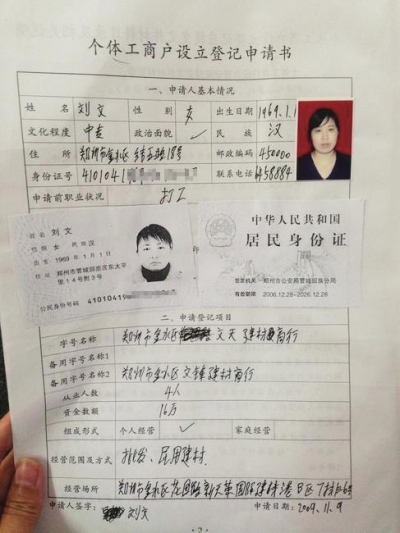 个体工商户设立登记申请书
一、申请人基本情况
姓名 刘文 性别 女 出生日期 1969.1.1
文化程度 中专 政治面貌 民族 汉
住所 郑州市金水区 18号 邮政编码 450000
身份证号 410104 联系电话 6458884
申请前职业状况 打工
姓名 刘文
性别 女 民族 汉
出生 1969年1月1日
住址 郑州市管城回族区东太平
第14号附3号
公民身份号码 41010419
中华人民共和国
居民身份证
签发机关 郑州市公安局管城回族分局
有效期限 2006.12.28-2026.12.28
二、申请登记项目
字号名称 郑州市金水区 文天建材商行
备用字号名称1
备用字号名称2 郑州市金水区文锋建材商行
从业人数 4人
资金数额 16万
组成形式 个人经营 ✓ 家庭经营
经营范围及方式 批发、民用建材
经营场所 郑州市金水区花园路新天荣国际建材港B区7栋
申请人签字: 刘文 申请日期: 2009.11.9